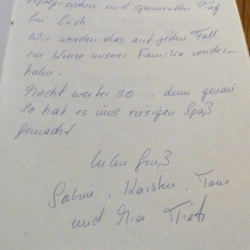 erfolgreichen und spannenden Tag
bei Euch
Wir werden das auf jeden Fall
im Kreise unserer Familie wieder-
holen.
Macht weiter so ... denn genau
so hat es uns riesigen Spaß
gemacht.
Lieben Gruß
Sabine, Karsten, Tom
und